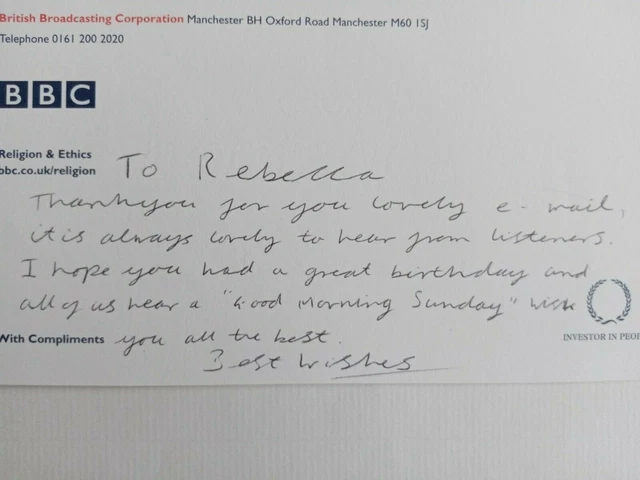 British Broadcasting Corporation Manchester BH Oxford Road Manchester M60 1SJ
Telephone 0161 200 2020
BBC
Religion & Ethics
bbc.co.uk/religion
To Rebecca
Thankyou for you lovely e-mail,
it is always lovely to hear from listeners.
I hope you had a great birthday and
all of us hear a "Good Morning Sunday" wish
you all the best.
With Compliments
Best Wishes
INVESTOR IN PEOP